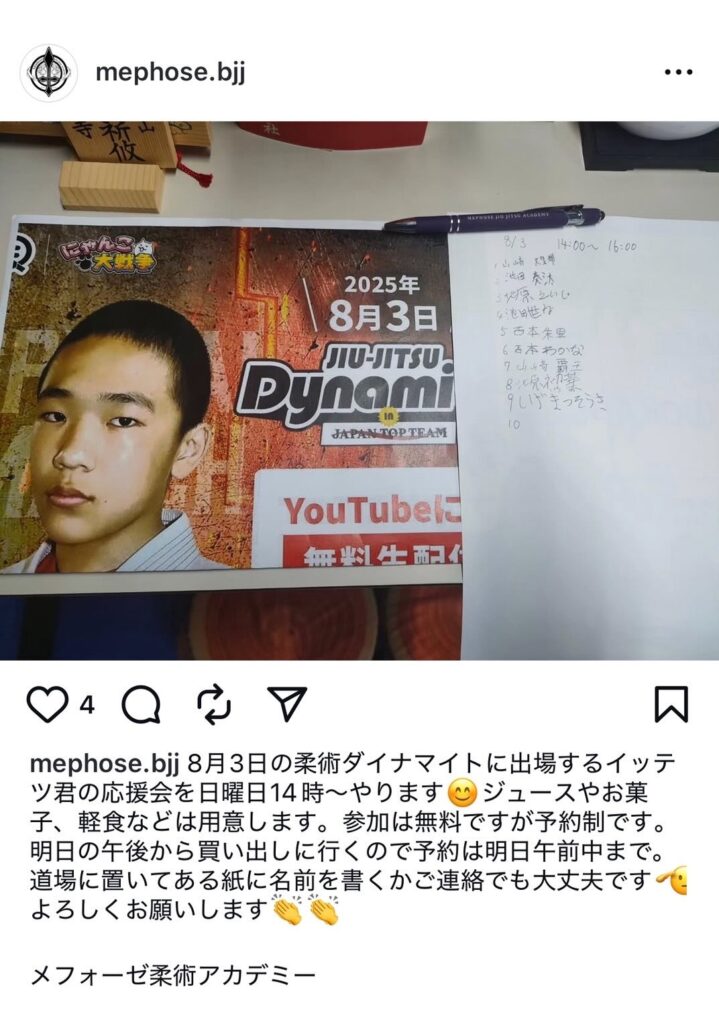 mephose.bjj
山
祈攸
寺
社
MEPHOSE JIU JITSU ACADEMY
にゃんこ
大戦争
2025年
8月3日
JIU-JITSU
Dynami
in
JAPAN TOP TEAM
YouTubeに
無料生配信
8/3 14:00〜 16:00
1 山崎
2 池田
3
4 池田
5 西本 朱里
6 西本 わかな
7 山崎 覇王
8
9 しげまつそうき
10
4
mephose.bjj 8月3日の柔術ダイナマイトに出場するイッテ
ツ君の応援会を日曜日14時〜やります😊ジュースやお菓
子、軽食などは用意します。参加は無料ですが予約制です。
明日の午後から買い出しに行くので予約は明日午前中まで。
道場に置いてある紙に名前を書くかご連絡でも大丈夫です🫡
よろしくお願いします👏👏
メフォーゼ柔術アカデミー